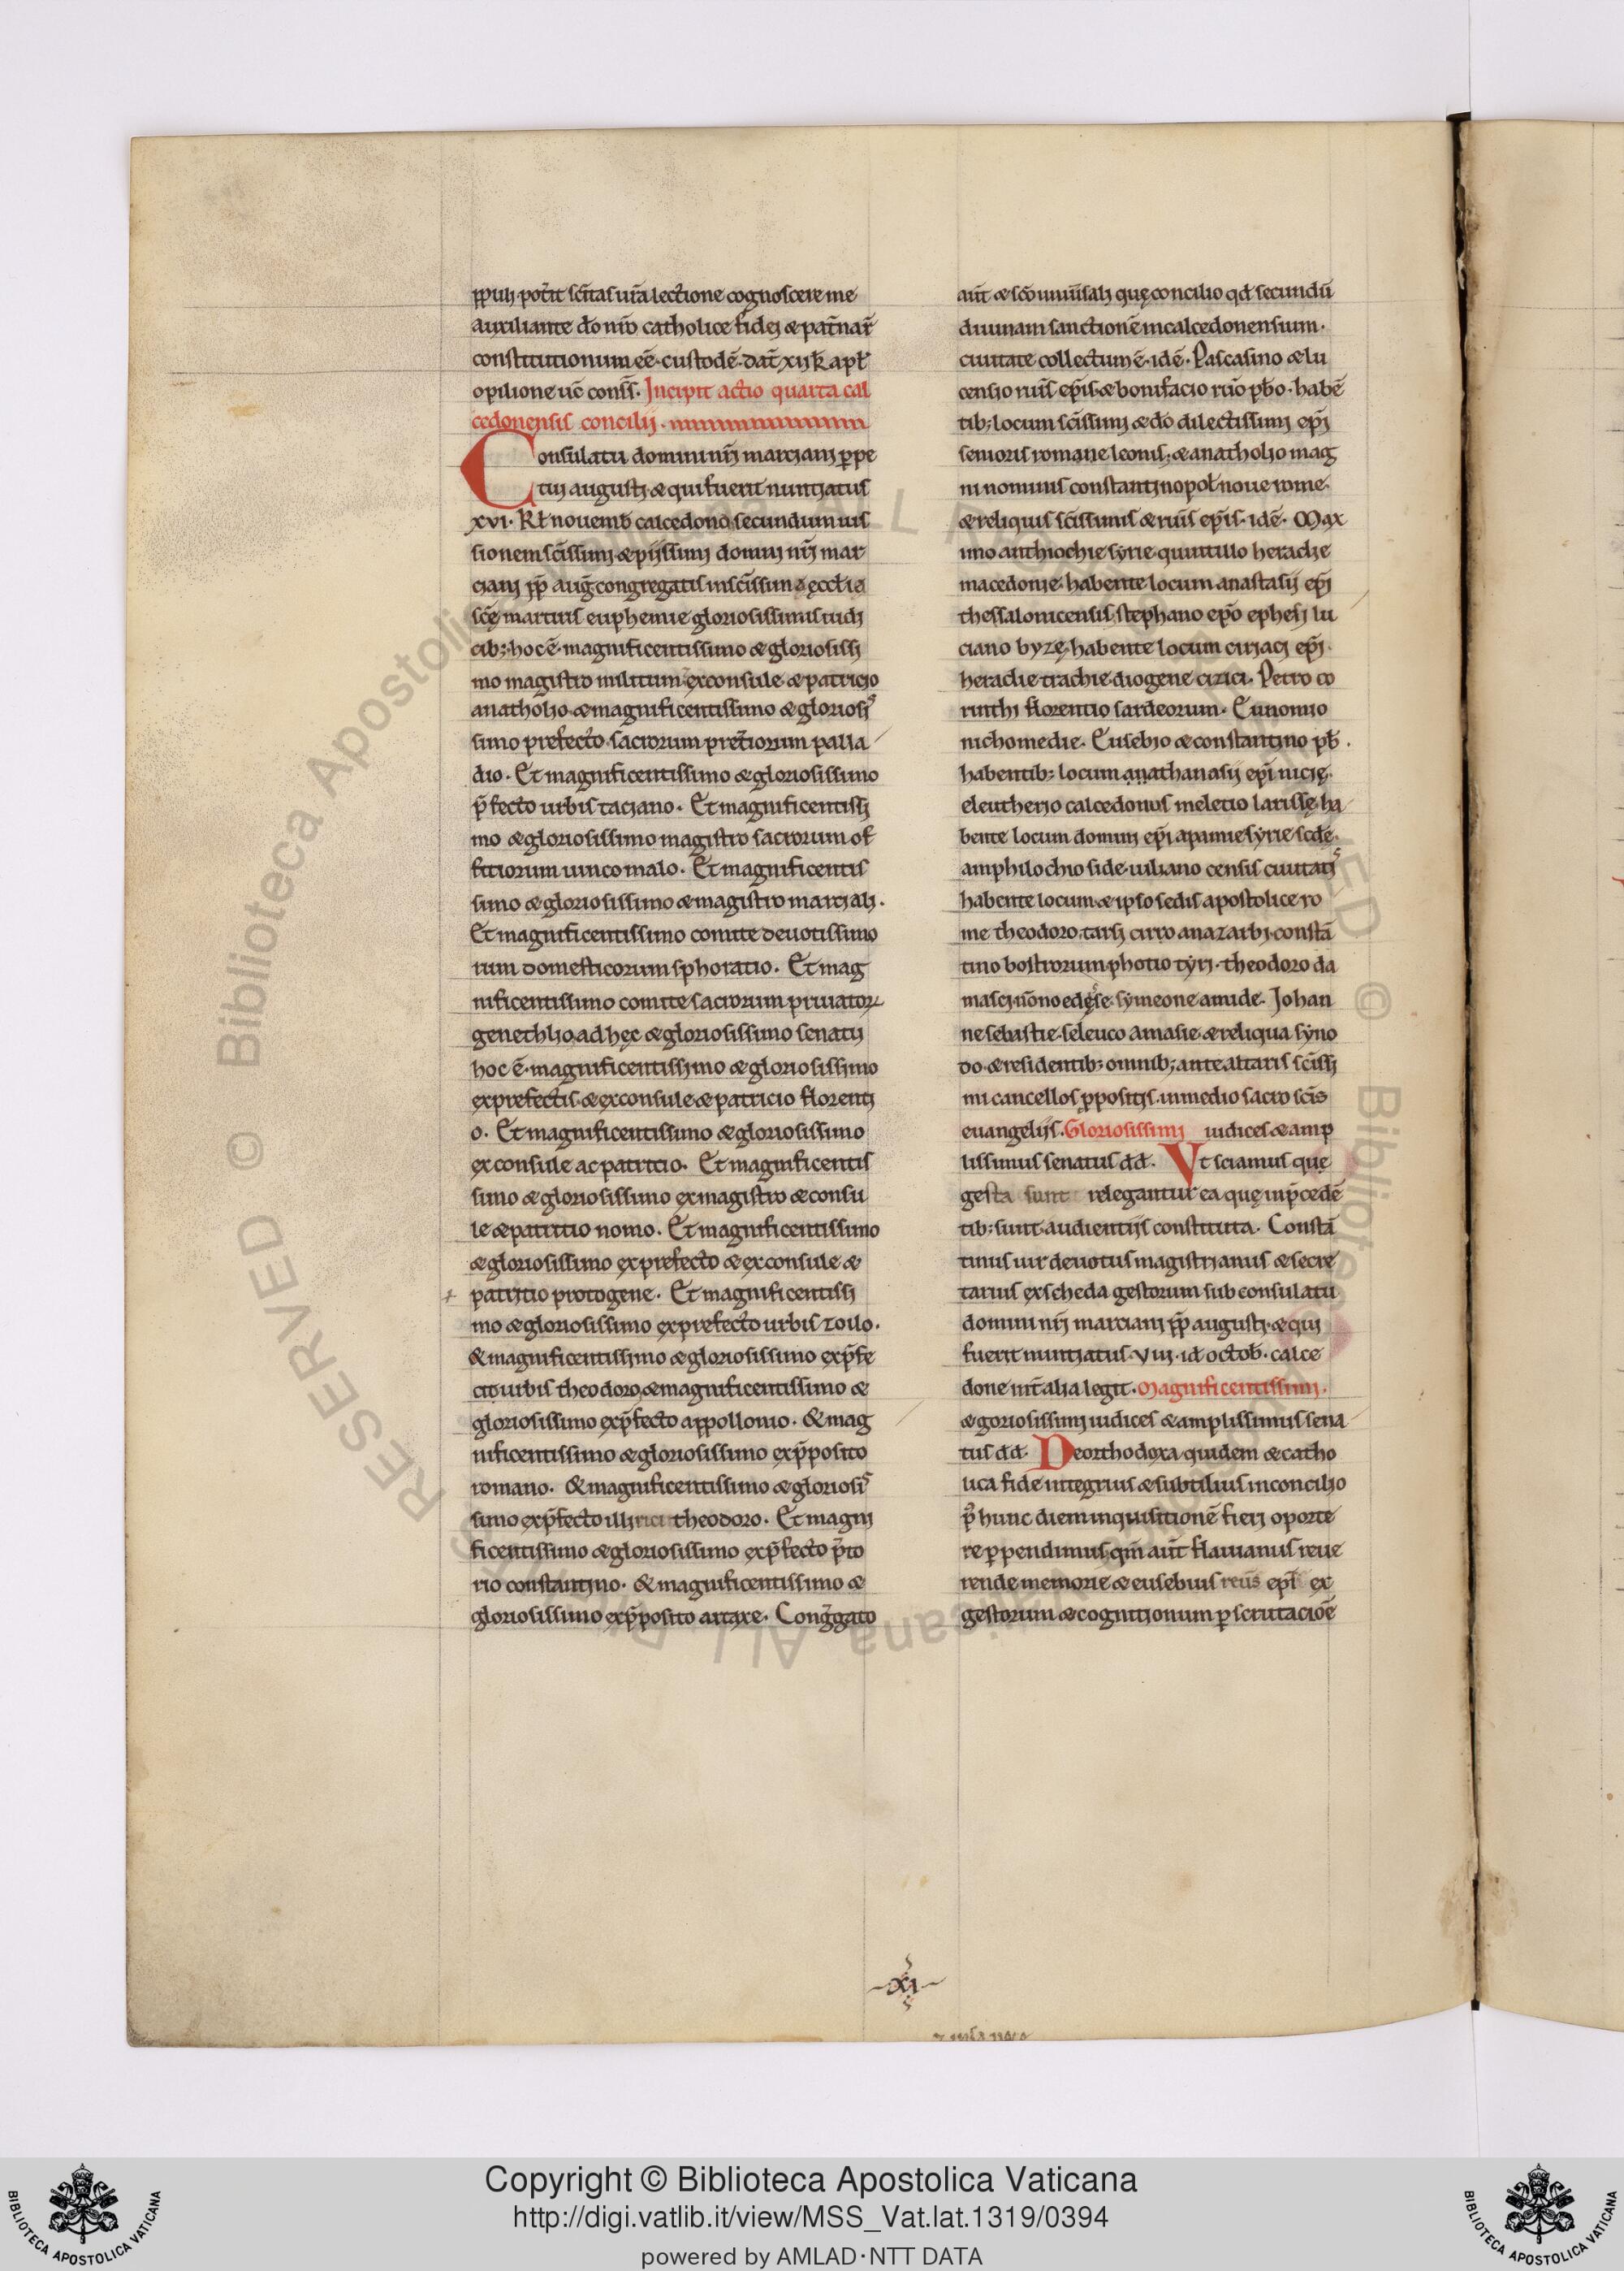 ppuli potit sc̄itas ur̄a lectione cognoscere me
auxiliante dō nr̄o catholice fidei & pat̄nar̄
constitutionum eē custodē. dat̄ xii k̄ apl̄
opilione uc̄ cons̄s. Incipit actio quarta cal
cedonensis concilii.
Consulatu domini nr̄i marciani p̱pe
tui augusti & qui fuerit nuntiatus
xvi. kl̄ nouemb̄ calcedona secundum ius
sionem sc̄issimi & piissimi domini nr̄i mar
ciani pp̄ auḡ congregatis in sc̄issima ęccl̄ia
sc̄ę martiris euphemie gloriosissimis iudi
cib; hoc ē magnificentissimo & gloriosissi
mo magistro militum exconsule & patricio
anatholio & magnificentissimo & gloriosis
simo prefecto sacrorum pretiorum palla
dio. Et magnificentissimo & gloriosissimo
p̄fecto urbis taciano. Et magnificentissi
mo & gloriosissimo magistro sacrorum of
fitiorum uinco malo. Et magnificentis
simo & gloriosissimo & magistro marciali.
Et magnificentissimo comite deuotissimo
rum domesticorum sphoratio. Et mag
nificentissimo comite sacrorum priuatoꝝ
genethlio, ad hęc & gloriosissimo senatu
hoc ē magnificentissimo & gloriosissimo
exprefectis & exconsule & patricio florenti
o. Et magnificentissimo & gloriosissimo
ex consule ac patritio. Et magnificentis
simo & gloriosissimo exmagistro & consu
le & patritio nomo. Et magnificentissimo
& gloriosissimo exprefecto & exconsule &
patritio protogene. Et magnificentissi
mo & gloriosissimo exprefecto urbis zoilo.
& magnificentissimo & gloriosissimo exp̄fe
cto urbis theodoro, & magnificentissimo &
gloriosissimo exp̄fecto appollonio. & mag
nificentissimo & gloriosissimo exp̄posito
romano. & magnificentissimo & gloriosis
simo exp̄fecto illirici theodoro. Et magni
ficentissimo & gloriosissimo exp̄fecto p̄to
rio constantino. & magnificentissimo &
gloriosissimo exp̄posito artaxe. Cong̅gato
aut̄ & sc̄o uniuīsali quę concilio qd̄ secundū
diuinam sanctionē in calcedonensium.
ciuitate collectum ē. idē. Pascasino & lu
censio ruīs ep̄is & bonifacio ruō pb̄o. habē
tib; locum sc̄issimi & dō dilectissimi ep̄i
senioris romane leonis; & anatholio mag
ni nominis constantinopol̄ noue rome.
& reliquis sc̄issimis & ruīs ep̄is. idē. Max
imo anthiochie syrie quintillo heraclie
macedonie. habente locum anastasii ep̄i
thessalonicensis, stephano ep̄o ephesi lu
ciano byzę, habente locum ciriaci ep̄i.
heraclie trachie diogene cizici. Petro co
rinthi florentio sardeorum. Eunomio
nichomedie. Eusebio & constantino pb̄.
habentib; locum anathanasii ep̄i nicię.
eleutherio calcedonis meletio larissę ha
bente locum domini ep̄i apamie syrie scdę.
amphilochio side. iuliano censis ciuitatis
habente locum & ipso sedis apostolice ro
me theodoro, tarsi cirro anazarbi. constā
tino bostrorum photio tyri. theodoro da
masci. nōno edęse. symeone amide. Johan
ne sebastie. seleuco amasie. & reliqua syno
do. & residentib; omnib; ante altaris sc̄issi
mi cancellos p̱positis. in medio sacro sc̄is
euangeliis. Gloriosissimi iudices & amp
lissimus senatus dd̄. Vt sciamus quę
gesta sunt relegantur ea quę in p̄cedē
tib; sunt audientiis constituta. Constā
tinus uir deuotus magistrianus & secre
tarius exscheda gestorum sub consulatu
domini nr̄i marciani pp̄ augusti & qui
fuerit nuntiatus. viii. id̄ octob̄. calce
done int̄ alia legit. Magnificentissimi.
& goriosissimi iudices & amplissimus sena
tus dd̄. De orthodoxa quidem & catho
lica fide integrius & subtilius in concilio
p̱ hunc diem inquisitionē fieri oporte
re p̱pendimus, qm̄ aut̄ flauianus reue
rende memorie & eusebius reūs ep̄s ex
gestorum & cognitionum p̱scrutaciōē
xi
Copyright © Biblioteca Apostolica Vaticana
http://digi.vatlib.it/view/MSS_Vat.lat.1319/0394
powered by AMLAD·NTT DATA
BIBLIOTECA APOSTOLICA VATICANA
BIBLIOTECA APOSTOLICA VATICANA